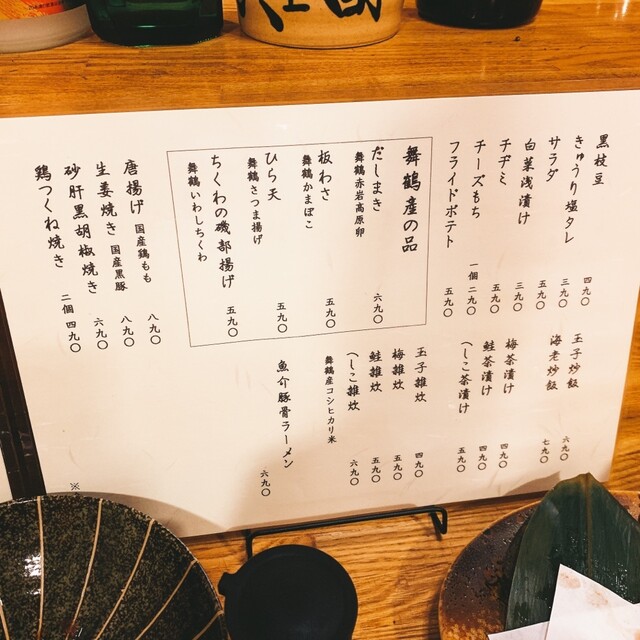 黒枝豆 四九〇
きゅうり塩タレ 三九〇
サラダ 五九〇
白菜浅漬け 三九〇
チヂミ 五九〇
チーズもち 一個 二九〇
フライドポテト 五九〇
舞鶴産の品
だしまき 六九〇
舞鶴赤岩高原卵
板わさ 五九〇
舞鶴かまぼこ
ひら天 五九〇
舞鶴さつま揚げ
ちくわの磯部揚げ 五九〇
舞鶴いわしちくわ
唐揚げ 国産鶏もも 八九〇
生姜焼き 国産黒豚 八九〇
砂肝黒胡椒焼き 六九〇
鶏つくね焼き 二個 四九〇
玉子炒飯 六九〇
海老炒飯 七九〇
梅茶漬け 四九〇
鮭茶漬け 四九〇
へしこ茶漬け 五九〇
玉子雑炊 四九〇
梅雑炊 五九〇
鮭雑炊 五九〇
へしこ雑炊 六九〇
舞鶴産コシヒカリ米
魚介豚骨ラーメン 六九〇
※